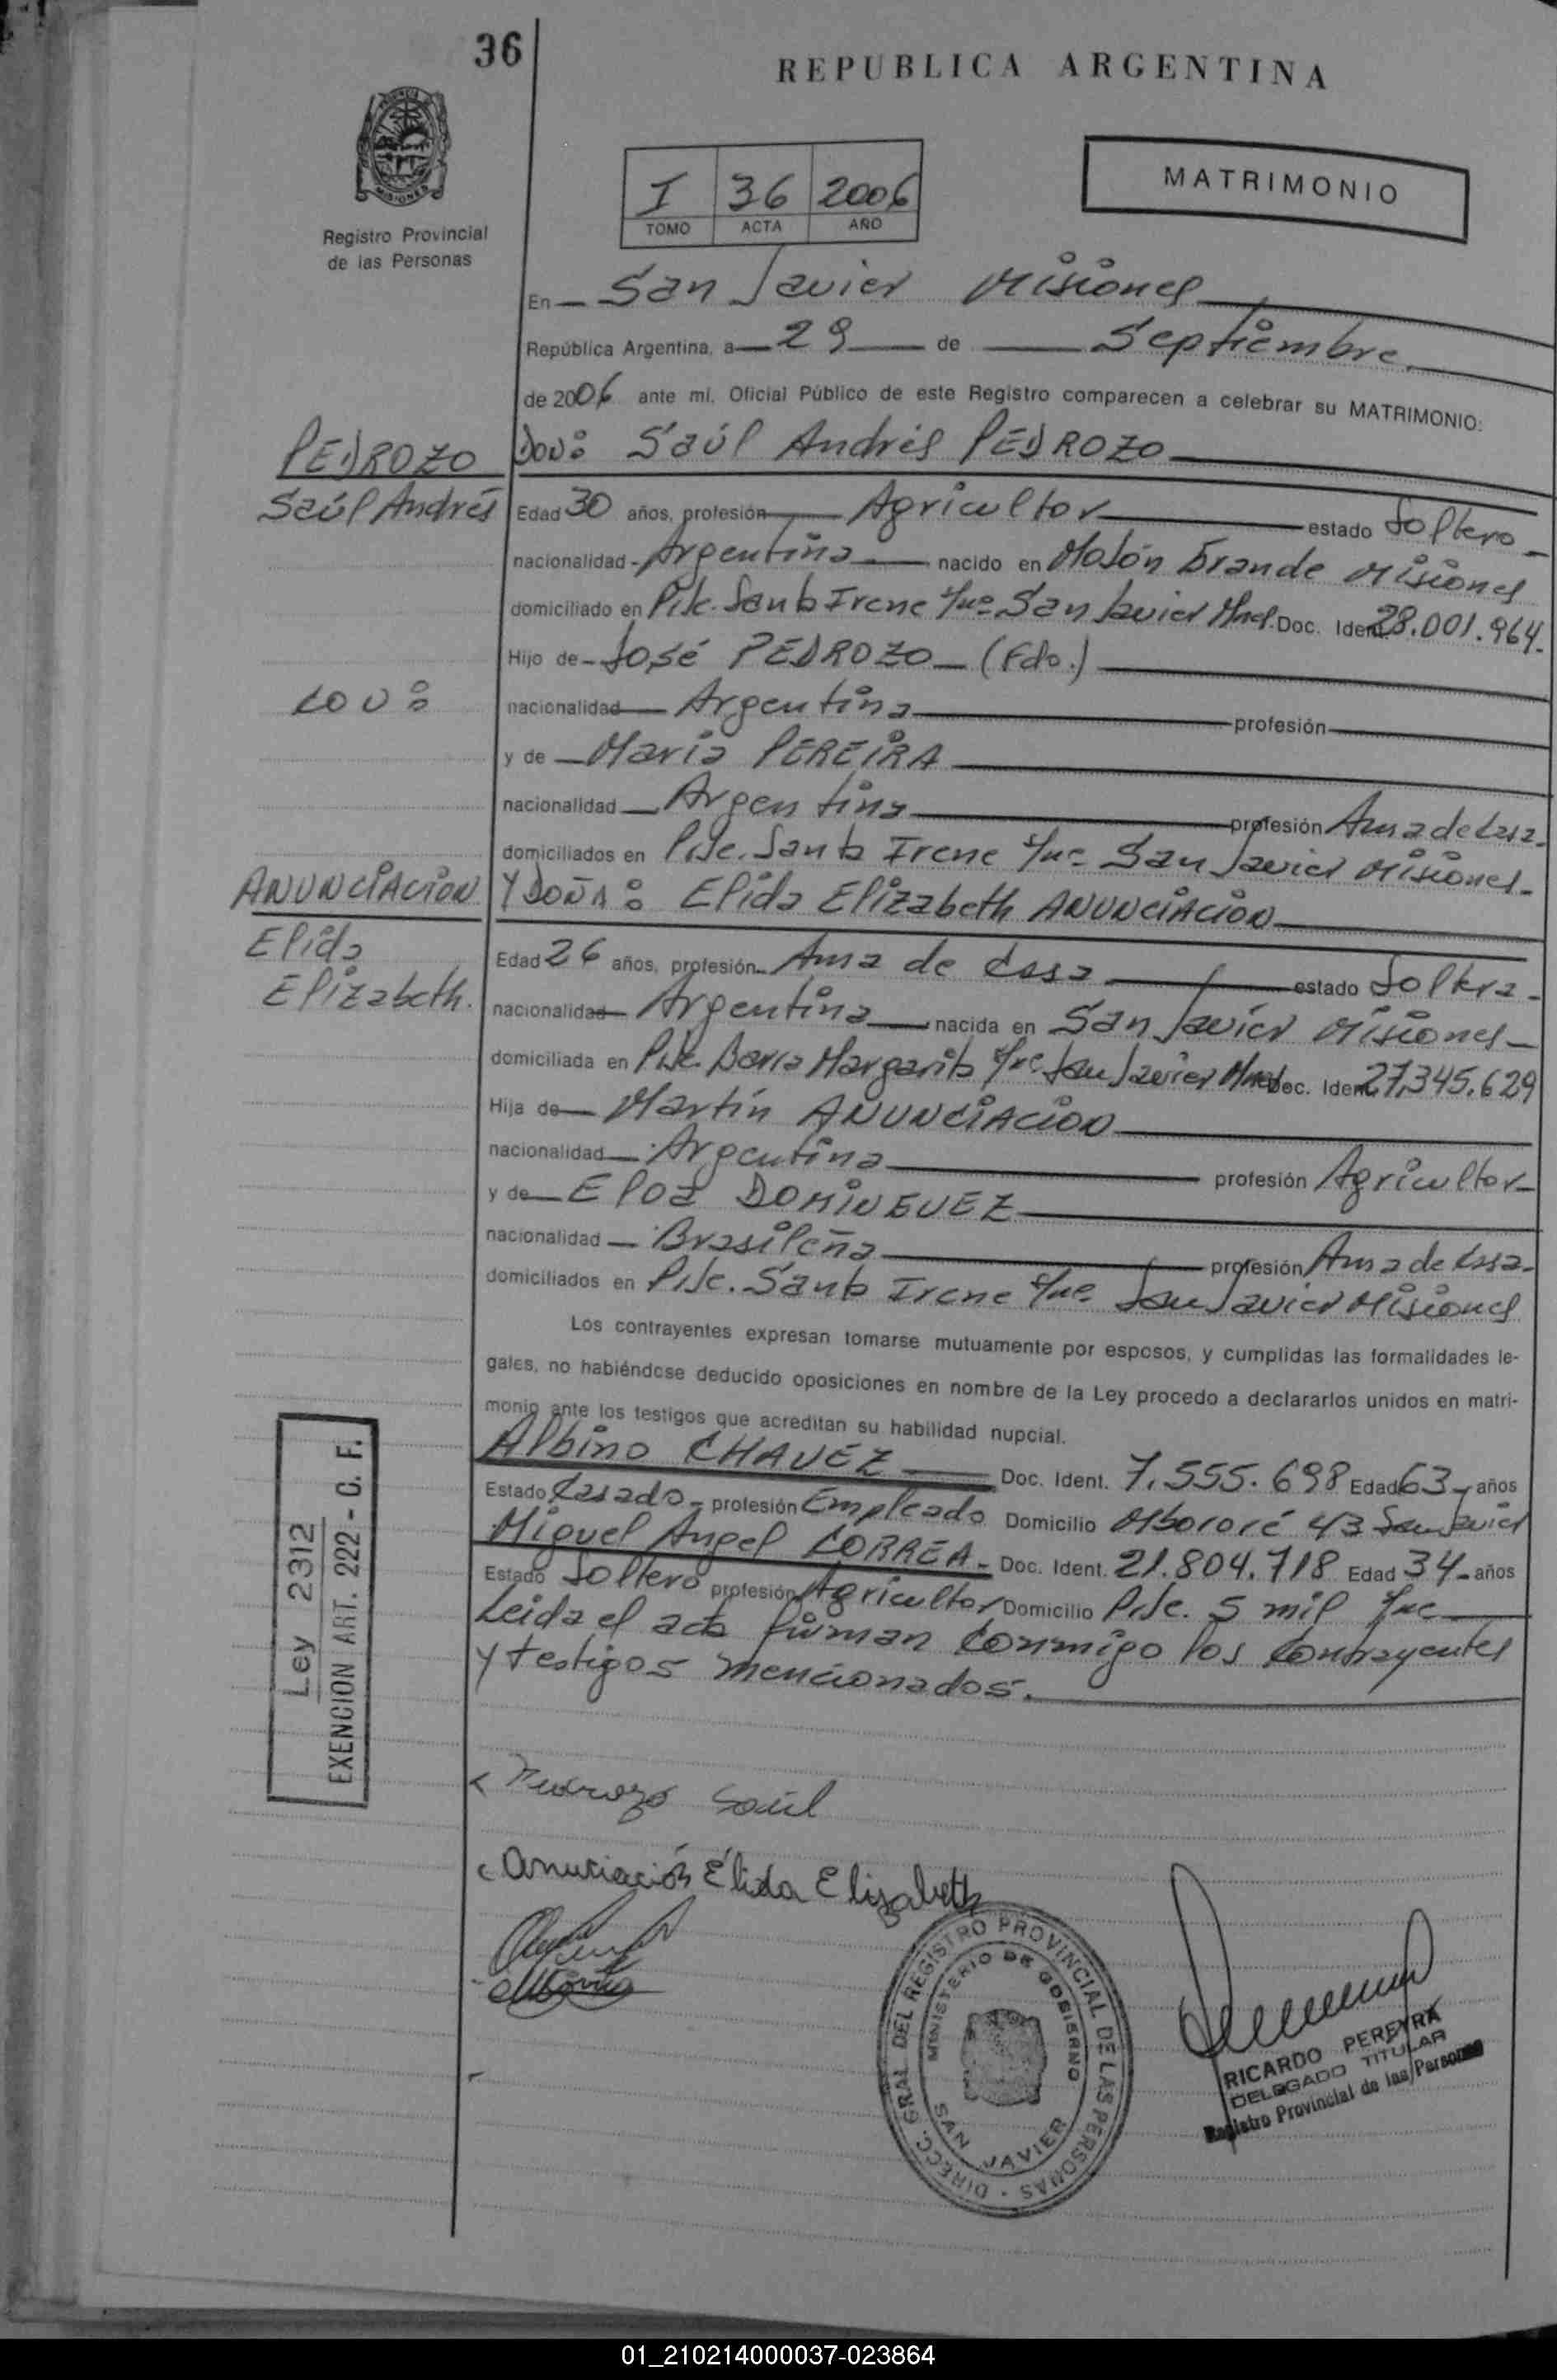 36
REPUBLICA ARGENTINA
MISIONES
Registro Provincial
de las Personas
I 36 2006
TOMO ACTA AÑO
MATRIMONIO
En San Javier Misiones
República Argentina, a 29 de Septiembre
de 2006 ante mi, Oficial Público de este Registro comparecen a celebrar su MATRIMONIO:
PEDROZO
Saúl Andrés
con:
ANUNCIACION
Elida
Elizabeth.
DON: Saúl Andrés PEDROZO
Edad 30 años, profesión Agricultor estado Soltero
nacionalidad Argentina nacido en Mojón Grande Misiones
domiciliado en Pje. Santa Irene San Javier Mnes. Doc. Ident. 28.001.964.
Hijo de José PEDROZO (Fdo.)
nacionalidad Argentina profesión
y de María PEREIRA
nacionalidad Argentina profesión Ama de Casa.
domiciliados en Pje. Santa Irene San Javier Misiones.
Y DOÑA: Elida Elizabeth ANUNCIACION
Edad 26 años, profesión Ama de Casa estado Soltera
nacionalidad Argentina nacida en San Javier Misiones
domiciliada en Pje. Barra Margarita San Javier Mnes Doc. Ident. 27.345.629
Hija de Martín ANUNCIACION
nacionalidad Argentina profesión Agricultor
y de Eloa DOMINGUEZ
nacionalidad Brasileña profesión Ama de Casa.
domiciliados en Pje. Santa Irene San Javier Misiones
Los contrayentes expresan tomarse mutuamente por esposos, y cumplidas las formalidades le-
gales, no habiéndose deducido oposiciones en nombre de la Ley procedo a declararlos unidos en matri-
monio ante los testigos que acreditan su habilidad nupcial.
Albino CHAVEZ Doc. Ident. 7.555.698 Edad 63 años
Estado Casado profesión Empleado Domicilio Mbororé 43 San Javier
Miguel Angel CORREA Doc. Ident. 21.804.718 Edad 34 años
Estado Soltero profesión Agricultor Domicilio Pje. 5 mil
Leida el acta firman conmigo los contrayentes
y testigos mencionados.
Ley 2312
EXENCION ART. 222 - C. F.
Pedrozo Saúl
Anunciación Élida Elizabeth
DIRECC. GRAL. DEL REGISTRO PROVINCIAL DE LAS PERSONAS
MINISTERIO DE GOBIERNO
SAN JAVIER
RICARDO PEREYRA
DELEGADO TITULAR
Registro Provincial de las Personas
01_210214000037-023864